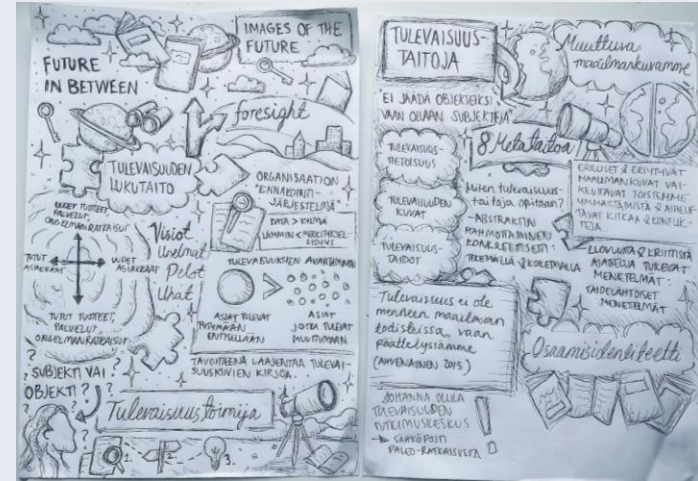 FUTURE
IN BETWEEN
IMAGES OF THE
FUTURE
foresight
TULEVAISUUDEN
LUKUTAITO
ORGANISAATION
ENNAKOINTI-
JÄRJESTELMÄ
DATA > KYLMÄ
LÄMMIN < MERKITYKSEL
LISYYS
UUDET TUOTTEET,
PALVELUT,
ONGELMANRATKAISUT
TUTUT
ASIAKKAAT
UUDET
ASIAKKAAT
TUTUT TUOTTEET,
PALVELUT,
ONGELMANRATKAISUT
Visiot
Unelmat
Pelot
Uhat
TULEVAISUUKSIEN AVARTAMINEN
ASIAT TULEVAT
PYSYMÄÄN
ENTISELLÄÄN
ASIAT
JOTKA TULEVAT
MUUTTUMAAN
TAVOITTEENA LAAJENTAA TULEVAI-
SUUSKUVIEN KIRJOA.
? SUBJEKTI VAI
OBJEKTI?
Tulevaisuustoimija
1.
2.
3.
TULEVAISUUS-
TAITOJA
Muuttuva
maailmankuvamme
"EI JÄÄDÄ OBJEKTEIKSI
VAAN OLLAAN SUBJEKTEJA"
TULEVAISUUS-
TIETOISUUS
TULEVAISUUDEN
KUVAT
TULEVAISUUS-
TAIDOT
8 Metataitoa
Miten tulevaisuus-
taitoja opitaan?
-ABSTRAKTIN
HAHMOTTAMINEN
KONKREETTISESTI:
TEKEMÄLLÄ & KOKEMALLA
ERILAISET & ERIYTYVÄT
MAAILMANKUVAT VAI-
KEUTTAVAT TOISTEMME
YMMÄRTÄMISTÄ & AIHEUT-
TAVAT KITKAA & KONFLIK-
TEJA.
LUOVUUTTA & KRIITTISTÄ
AJATTELUA TUKEVAT
MENETELMÄT:
TAIDELÄHTÖISET
MENETELMÄT
Tulevaisuus ei ole
menneen maailman
todisteissa vaan
päättelyssämme
(AHVENAINEN 2015)
Osaamisidentiteetti
JOHANNA OLLILA
TULEVAISUUDEN
TUTKIMUSKESKUS
→ SÄHKÖPOSTI
PALEO-RATKAISUSTA